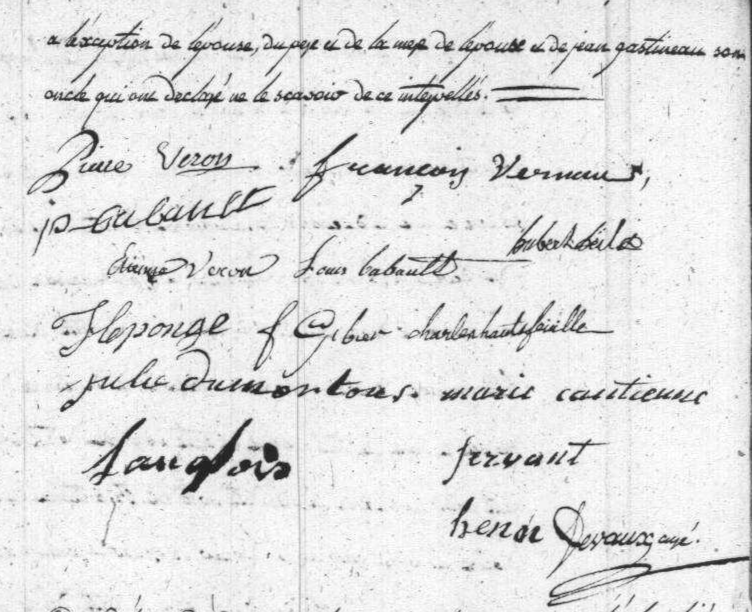 a l'exception de l'epouse, du pere et de la mere de l'epouse et de jean gastineau son
oncle qui ont declaré ne le scavoir de ce interpellés.
Pierre Veron françois Verneau
p babault
hubert
Etienne Veron Louis babault
f Gibier charles hautefeuille
julie dumontous. marie cantienne
Langlois servant
henri Devaux ayé.